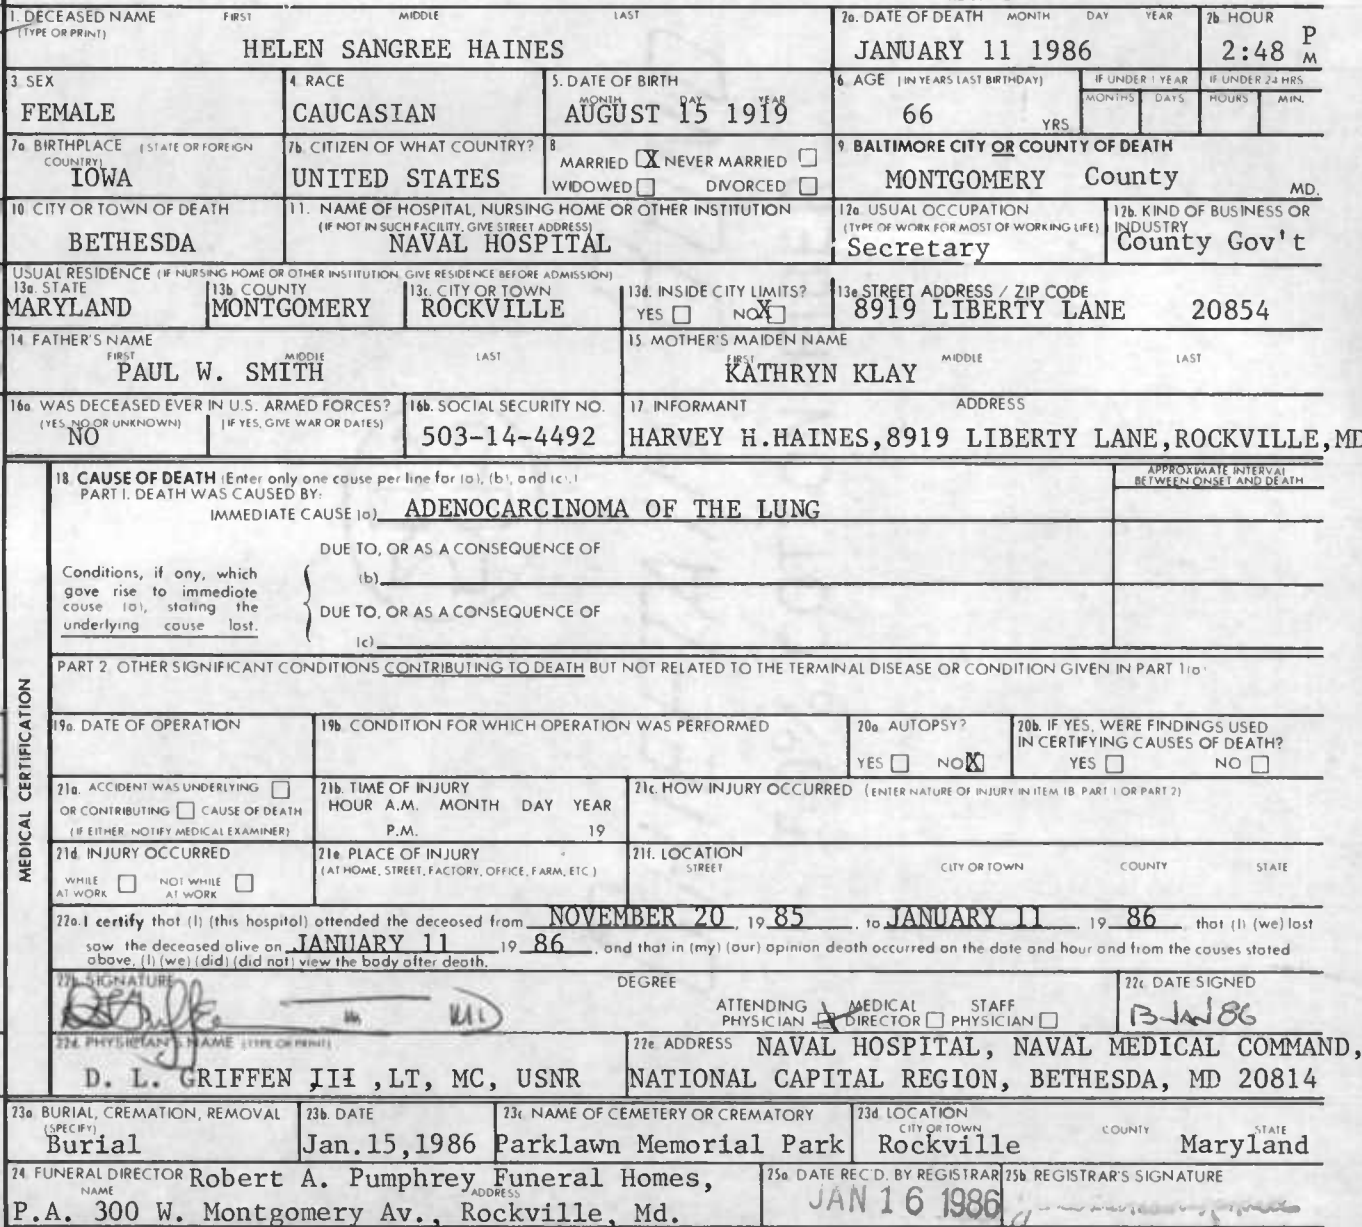 1. DECEASED NAME FIRST MIDDLE LAST
(TYPE OR PRINT)
HELEN SANGREE HAINES
2a. DATE OF DEATH MONTH DAY YEAR
JANUARY 11 1986
2b HOUR
2:48 P M
3 SEX
FEMALE
4 RACE
CAUCASIAN
5. DATE OF BIRTH
MONTH DAY YEAR
AUGUST 15 1919
6 AGE (IN YEARS LAST BIRTHDAY)
66 YRS
IF UNDER 1 YEAR
MONTHS DAYS
IF UNDER 24 HRS
HOURS MIN.
7a BIRTHPLACE (STATE OR FOREIGN COUNTRY)
IOWA
7b CITIZEN OF WHAT COUNTRY?
UNITED STATES
8
MARRIED X NEVER MARRIED
WIDOWED DIVORCED
9 BALTIMORE CITY OR COUNTY OF DEATH
MONTGOMERY County MD.
10 CITY OR TOWN OF DEATH
BETHESDA
11. NAME OF HOSPITAL, NURSING HOME OR OTHER INSTITUTION
(IF NOT IN SUCH FACILITY, GIVE STREET ADDRESS)
NAVAL HOSPITAL
12a USUAL OCCUPATION
(TYPE OF WORK FOR MOST OF WORKING LIFE)
Secretary
12b. KIND OF BUSINESS OR INDUSTRY
County Gov't
USUAL RESIDENCE (IF NURSING HOME OR OTHER INSTITUTION GIVE RESIDENCE BEFORE ADMISSION)
13a. STATE
MARYLAND
13b COUNTY
MONTGOMERY
13c. CITY OR TOWN
ROCKVILLE
13d. INSIDE CITY LIMITS?
YES NO X
13e STREET ADDRESS / ZIP CODE
8919 LIBERTY LANE 20854
14 FATHER'S NAME
FIRST MIDDLE LAST
PAUL W. SMITH
15 MOTHER'S MAIDEN NAME
FIRST MIDDLE LAST
KATHRYN KLAY
16a WAS DECEASED EVER IN U.S. ARMED FORCES?
(YES, NO OR UNKNOWN) (IF YES, GIVE WAR OR DATES)
NO
16b. SOCIAL SECURITY NO.
503-14-4492
17 INFORMANT ADDRESS
HARVEY H.HAINES,8919 LIBERTY LANE,ROCKVILLE,MD
MEDICAL CERTIFICATION
18 CAUSE OF DEATH (Enter only one cause per line for (a), (b), and (c).)
PART I. DEATH WAS CAUSED BY:
IMMEDIATE CAUSE (a) ADENOCARCINOMA OF THE LUNG
APPROXIMATE INTERVAL
BETWEEN ONSET AND DEATH
DUE TO, OR AS A CONSEQUENCE OF
(b)
Conditions, if any, which
gave rise to immediate
cause (a), stating the
underlying cause last.
DUE TO, OR AS A CONSEQUENCE OF
(c)
PART 2 OTHER SIGNIFICANT CONDITIONS CONTRIBUTING TO DEATH BUT NOT RELATED TO THE TERMINAL DISEASE OR CONDITION GIVEN IN PART 1(a)
19a. DATE OF OPERATION
19b CONDITION FOR WHICH OPERATION WAS PERFORMED
20a AUTOPSY?
YES NO X
20b. IF YES, WERE FINDINGS USED
IN CERTIFYING CAUSES OF DEATH?
YES NO
21a. ACCIDENT WAS UNDERLYING
OR CONTRIBUTING CAUSE OF DEATH
(IF EITHER NOTIFY MEDICAL EXAMINER)
21b. TIME OF INJURY
HOUR A.M. MONTH DAY YEAR
P.M. 19
21c. HOW INJURY OCCURRED (ENTER NATURE OF INJURY IN ITEM 18 PART 1 OR PART 2)
21d INJURY OCCURRED
WHILE AT WORK NOT WHILE AT WORK
21e PLACE OF INJURY
(AT HOME, STREET, FACTORY, OFFICE, FARM, ETC)
21f. LOCATION
STREET CITY OR TOWN COUNTY STATE
22a. I certify that (I) (this hospital) attended the deceased from NOVEMBER 20, 19 85, to JANUARY 11 19 86, that (I) (we) last
saw the deceased alive on JANUARY 11 19 86, and that in (my) (our) opinion death occurred on the date and hour and from the causes stated
above, (I) (we) (did) (did not) view the body after death.
22b SIGNATURE
MD
DEGREE
ATTENDING PHYSICIAN X MEDICAL DIRECTOR STAFF PHYSICIAN
22c DATE SIGNED
13 JAN 86
22d PHYSICIAN'S NAME (TYPE OR PRINT)
D. L. GRIFFEN III ,LT, MC, USNR
22e ADDRESS NAVAL HOSPITAL, NAVAL MEDICAL COMMAND,
NATIONAL CAPITAL REGION, BETHESDA, MD 20814
23a BURIAL, CREMATION, REMOVAL
(SPECIFY)
Burial
23b. DATE
Jan.15,1986
23c NAME OF CEMETERY OR CREMATORY
Parklawn Memorial Park
23d LOCATION
CITY OR TOWN COUNTY STATE
Rockville Maryland
24 FUNERAL DIRECTOR Robert A. Pumphrey Funeral Homes,
NAME ADDRESS
P.A. 300 W. Montgomery Av., Rockville, Md.
25a DATE REC'D. BY REGISTRAR
JAN 16 1986
25b REGISTRAR'S SIGNATURE